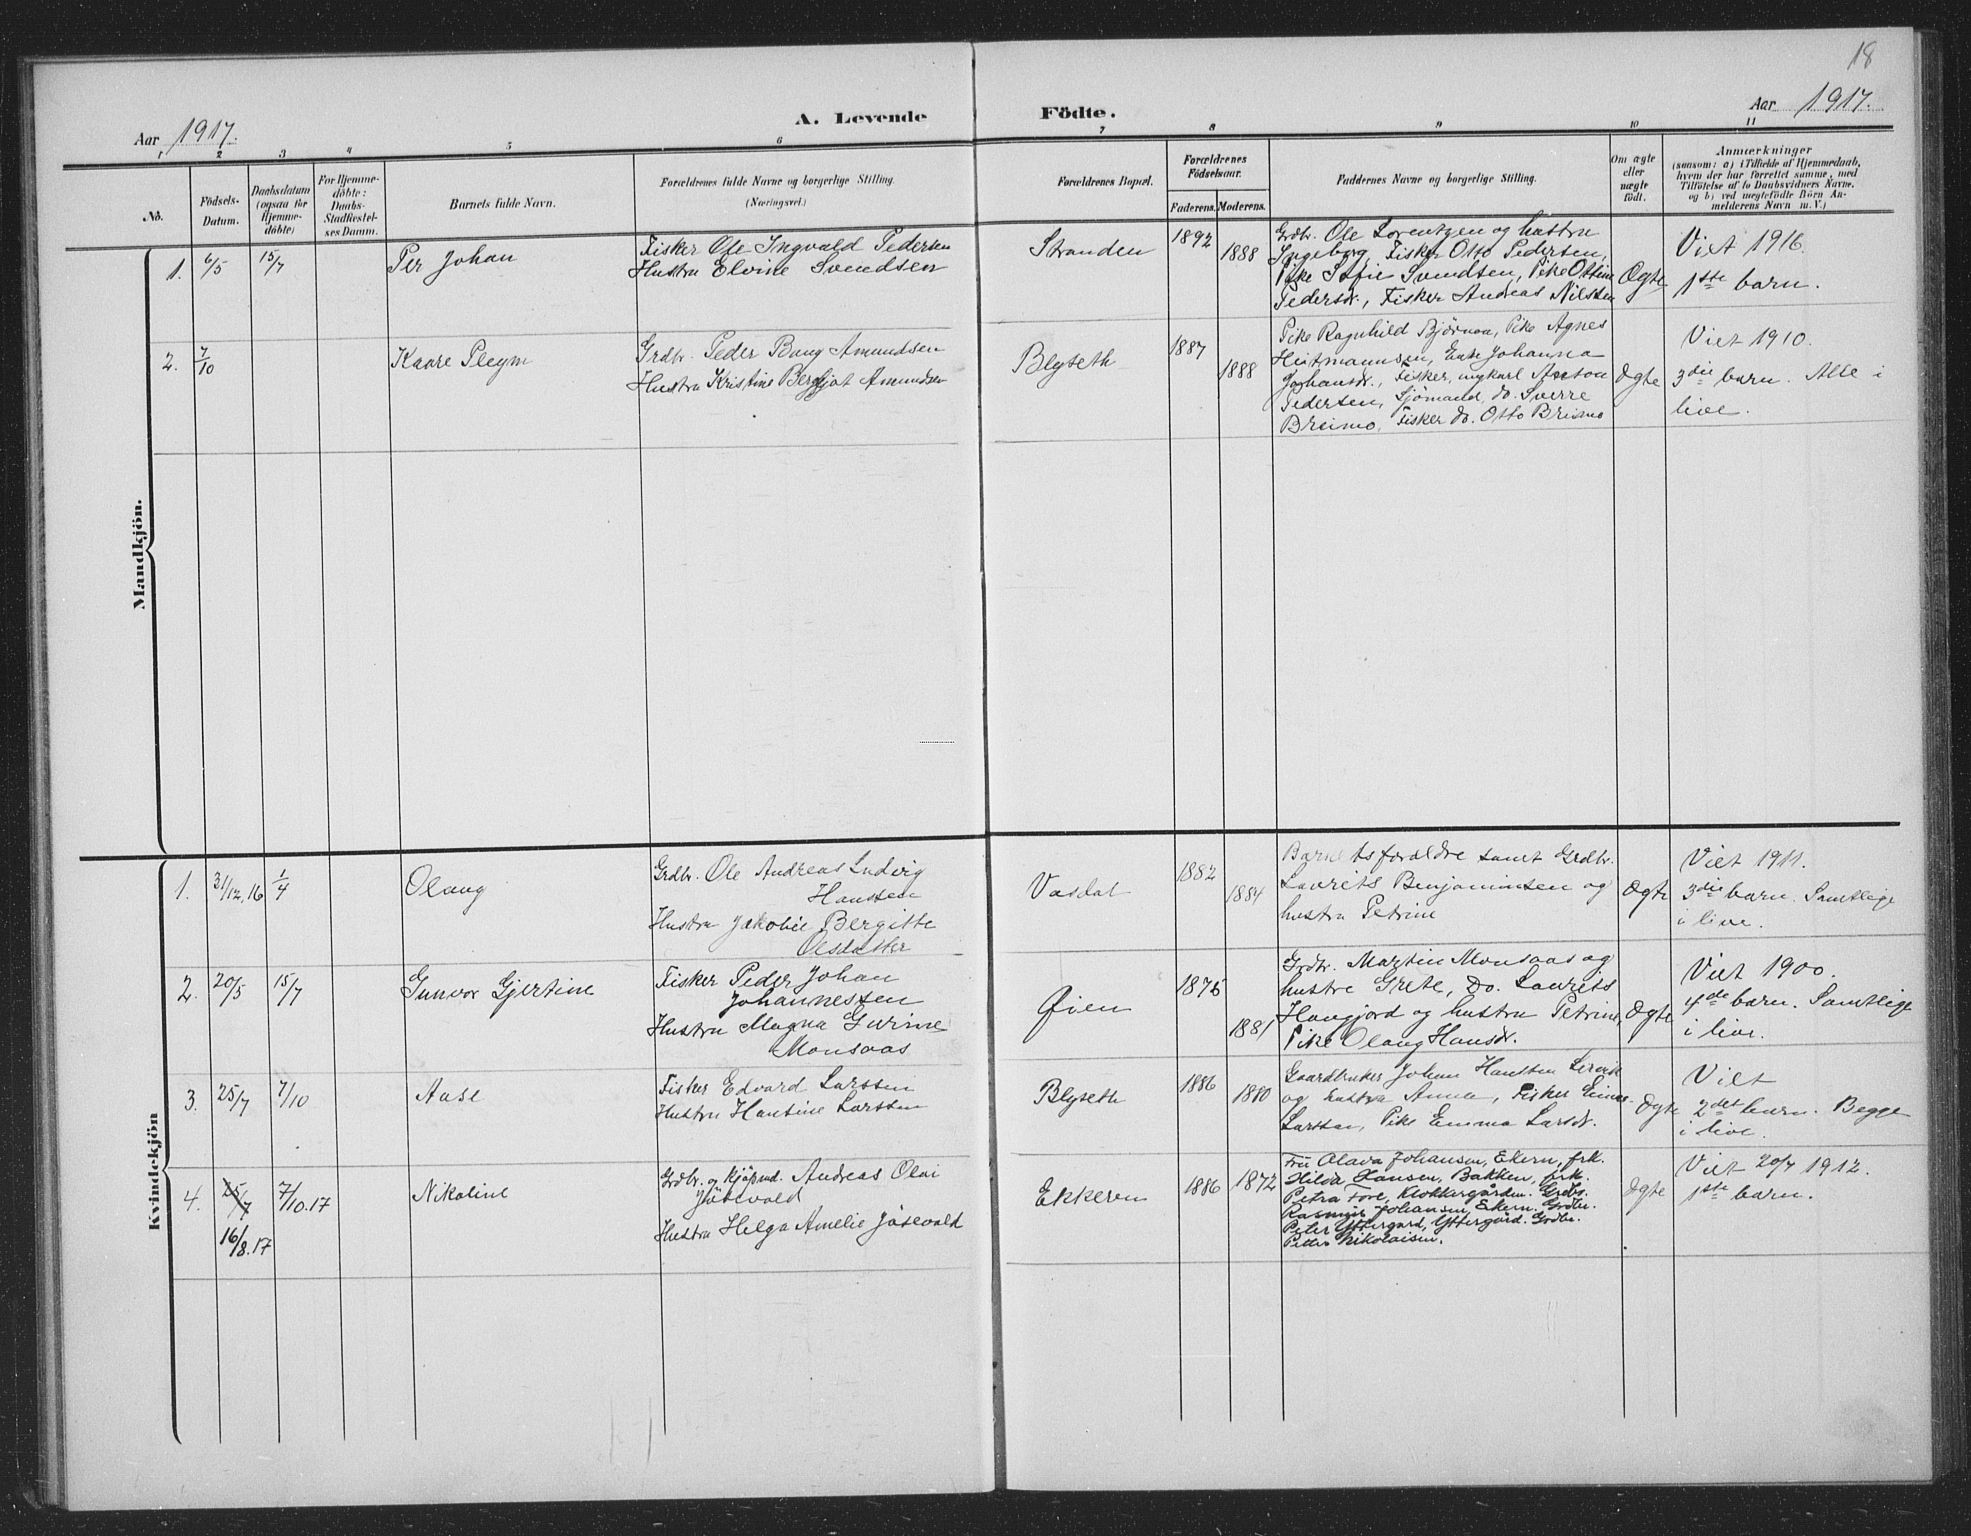 18
Aar 1917.
A. Levende Födte.
Aar 1917.
1 2 3 4 5 6 7 8 9 10 11
No.
Födsels-
Datum.
Daabsdatum
(ogsaa for
Hjemme-
döbte)
For Hjemme-
döbte:
Daabs-
Stadfæstel-
ses Datum.
Barnets fulde Navn.
Forældrenes fulde Navne og borgerlige Stilling.
(Næringsvei.)
Forældrenes Bopæl.
Forældrenes
Födselsaar.
Faderens. Moderens.
Faddernes Navne og borgerlige Stilling.
Om ægte
eller
uægte
födt.
Anmærkninger
(saasom: a) i Tilfælde af Hjemmedaab,
hvem der har forrettet samme, med
Tilföielse af to Daabsvidners Navne.
og b) ved uægtefödte Börn An-
melderens Navn m. V.)
Mandkjön.
1. 6/5 15/7 Per Johan
Fisker Ole Ingvald Pedersen
Hustru Elvine Svendsen
Stranden
1892 1888
Grdbr. Ole Lorentzen og hustru
Ingeborg, Fisker Otto Pedersen,
Pike Sofie Svendsen, Pike Ottine
Pedersdr., Fisker Andreas Nilsen
Ægte
Viet 1916
1ste barn.
2. 7/10 Kaare Pleym
Grdbr. Peder Bang Amundsen
Hustru Kristine Bergljot Amundsen
Blyseth
1887 1888
Pike Ragnhild Bjørnaa, Pike Agnes
Heitmannsen, Enke Johanna
Johansdr., Fisker, ungkarl Anton
Pedersen, Sjömand, do. Sverre
Breimo, Fisker do. Otto Breimo
Ægte
Viet 1910.
3die barn. Alle i
live.
Kvindekjön
1. 31/12.16 1/4 Olaug
Grdbr. Ole Andreas Ludvig
Hanssen
Hustru Jakobie Bergitte
Olsdatter
Vasdal
1882 1884
Barnets forældre samt Grdbr.
Laurits Benjaminsen og
hustru Petrine
Ægte
Viet 1911.
3die barn. Samtlige
i live.
2. 20/5 15/7 Gunvor Gjertine
Fisker Peder Johan
Johannessen
Hustru Magna Gurine
Monsaas
Øien
1875 1881
Grdbr. Martin Monsaas og
hustru Grete, Do. Laurits
Haugjord og hustru Petrine,
Pike Olaug Hansdr.
Ægte
Viet 1900.
4de barn. Samtlige
i live.
3. 25/7 7/10 Aase
Fisker Edvard Larssen
Hustru Hansine Larssen
Blyseth
1886 1880
Gaardbruker Johan Hanssen
og hustru Anna, Fisker
Larssen, Pike Emma Larsdr.
Ægte
Viet
2det barn. Begge
i live.
4. 25/7 7/10.17 Nikoline
16/8.17
Grdbr. og Kjøpmd. Andreas Olai
Jösevold
Hustru Helga Amelie Jösevold
Ekkeren
1886 1872
Fru Olava Johansen, Ekern, frk.
Hilda Hansen, Bakken, frk.
Petra Tore, Klokkergården. Grdbr.
Rasmus Johansen, Ekern. Grdbr.
Peter Yttergård, Yttergård. Grdbr.
Petter Nikolaisen.
Ægte
Viet 20/7 1912.
1ste barn.